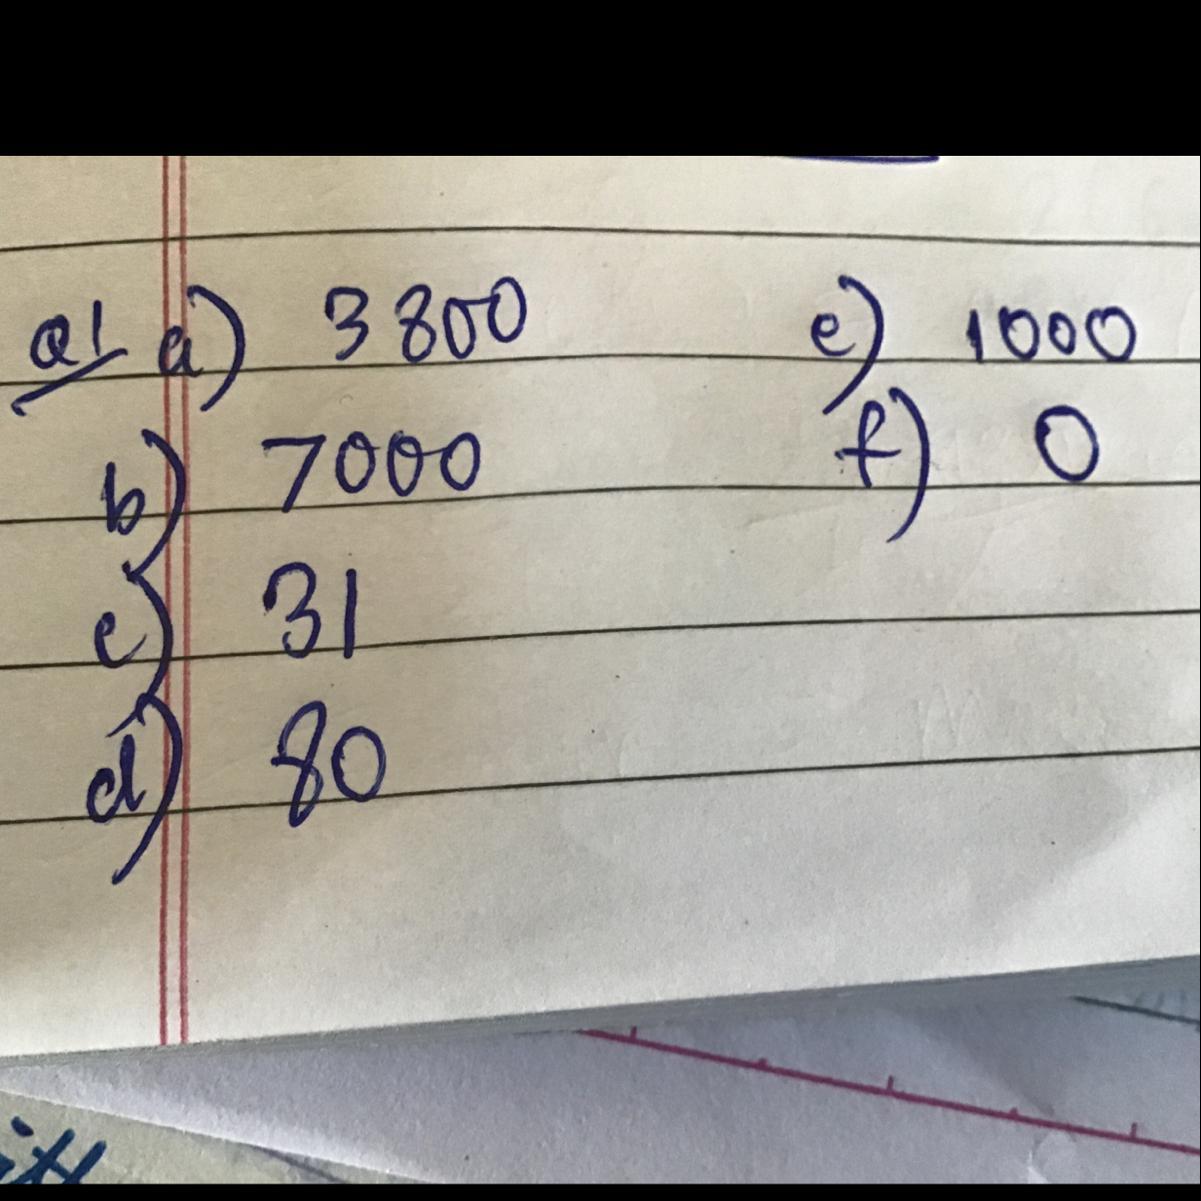 Q1 a) 3800
b) 7000
c) 31
d) 80
e) 1000
f) 0